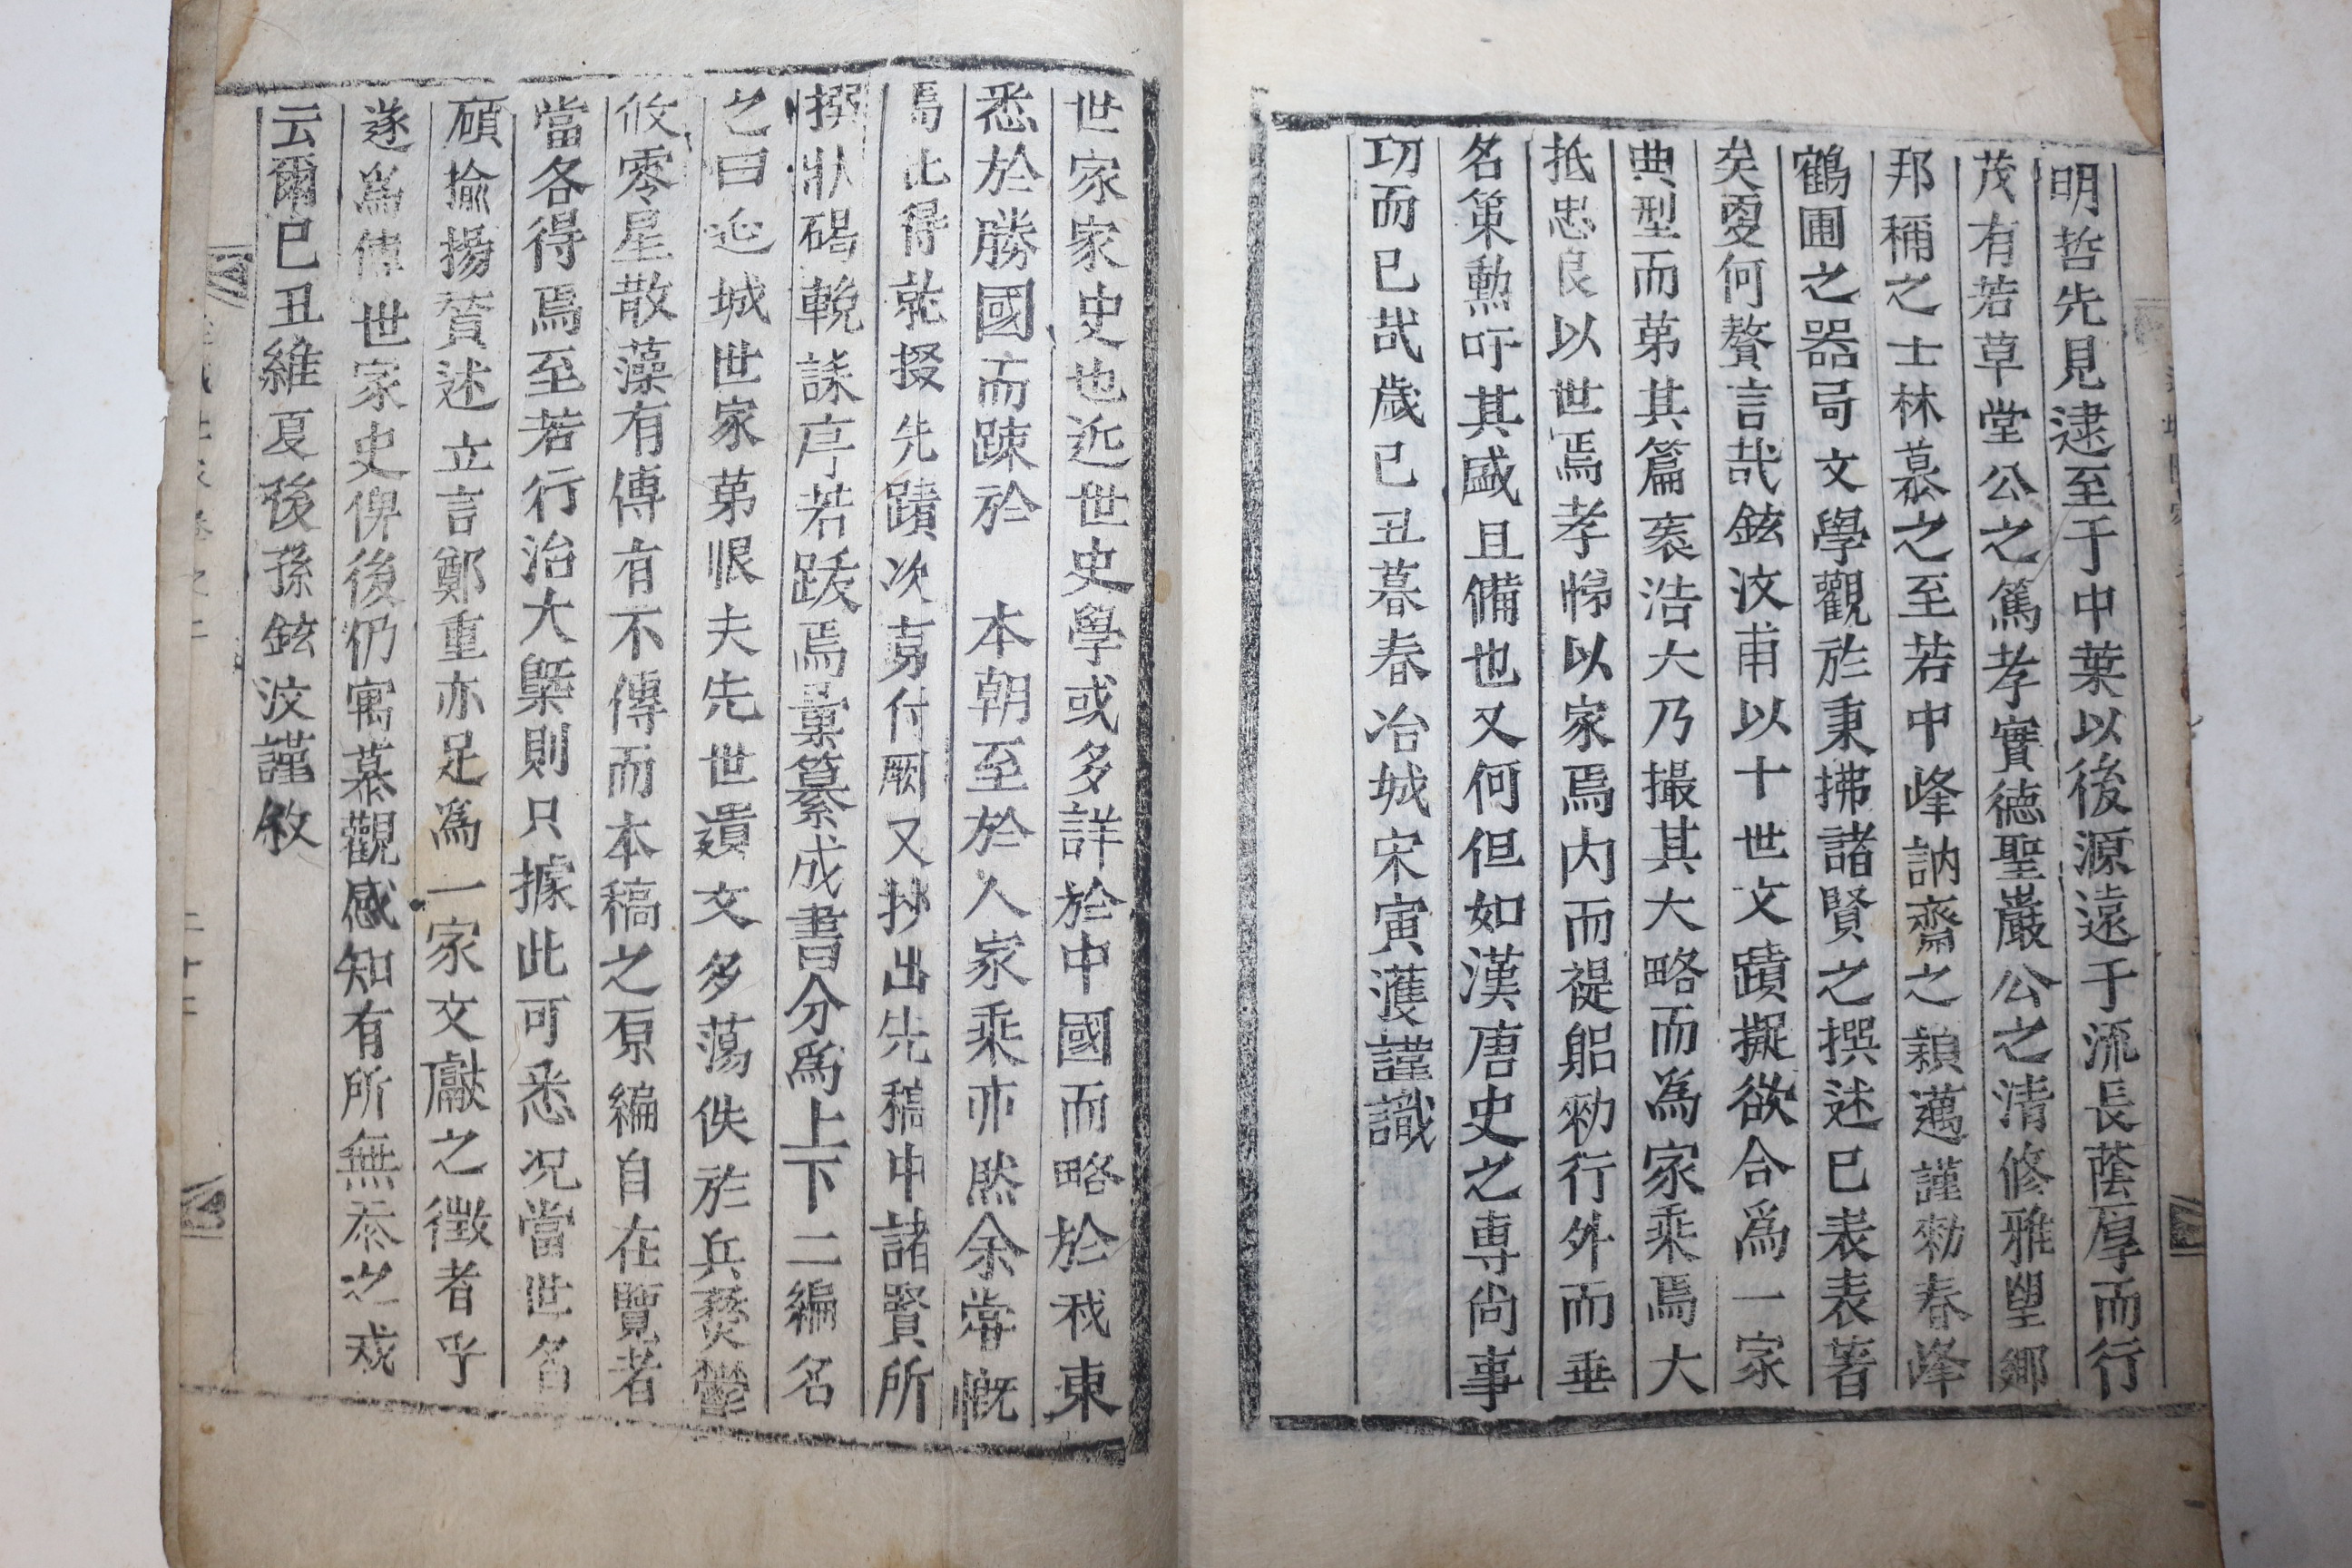 明哲先見逮至于中葉以後源遠于流長蔭厚而行
茂有若草堂公之篤孝實德聖巖公之清修雅望鄉
邦稱之士林慕之至若中峰訥齋之穎邁謹勑春峰
鶴圃之器局文學觀於秉拂諸賢之撰述已表表著
矣更何贅言哉鉉汶甫以十世文蹟擬欲合爲一家
典型而苐其篇袠浩大乃撮其大略而為家乘焉大
抵忠良以世焉孝悌以家焉内而禔躳勑行外而垂
名策勲吁其盛且備也又何但如漢唐史之專尚事
功而已哉歲己丑暮春冶城宋寅濩謹識
世家家史也近世史學或多詳於中國而略於我東
悉於勝國而踈於 本朝至於人家乘亦然余常慨
焉比得就掇先蹟次嘉付劂又抄出先稿中諸賢所
撰狀碣輓誄序若跋焉彙纂成書分為上下二編名
之曰延城世家苐恨夫先世遺文多蕩佚於兵燹鬱
攸零星散藻有傳有不傳而本稿之原編自在覽者
當各得焉至若行治大槩則只據此可悉况當世名
碩揄揚贊述立言鄭重亦足為一家文獻之徵者乎
遂爲傳世家史俾後仍寓慕觀感知有所無忝之戒
云爾己丑維夏後孫鉉汶謹敘